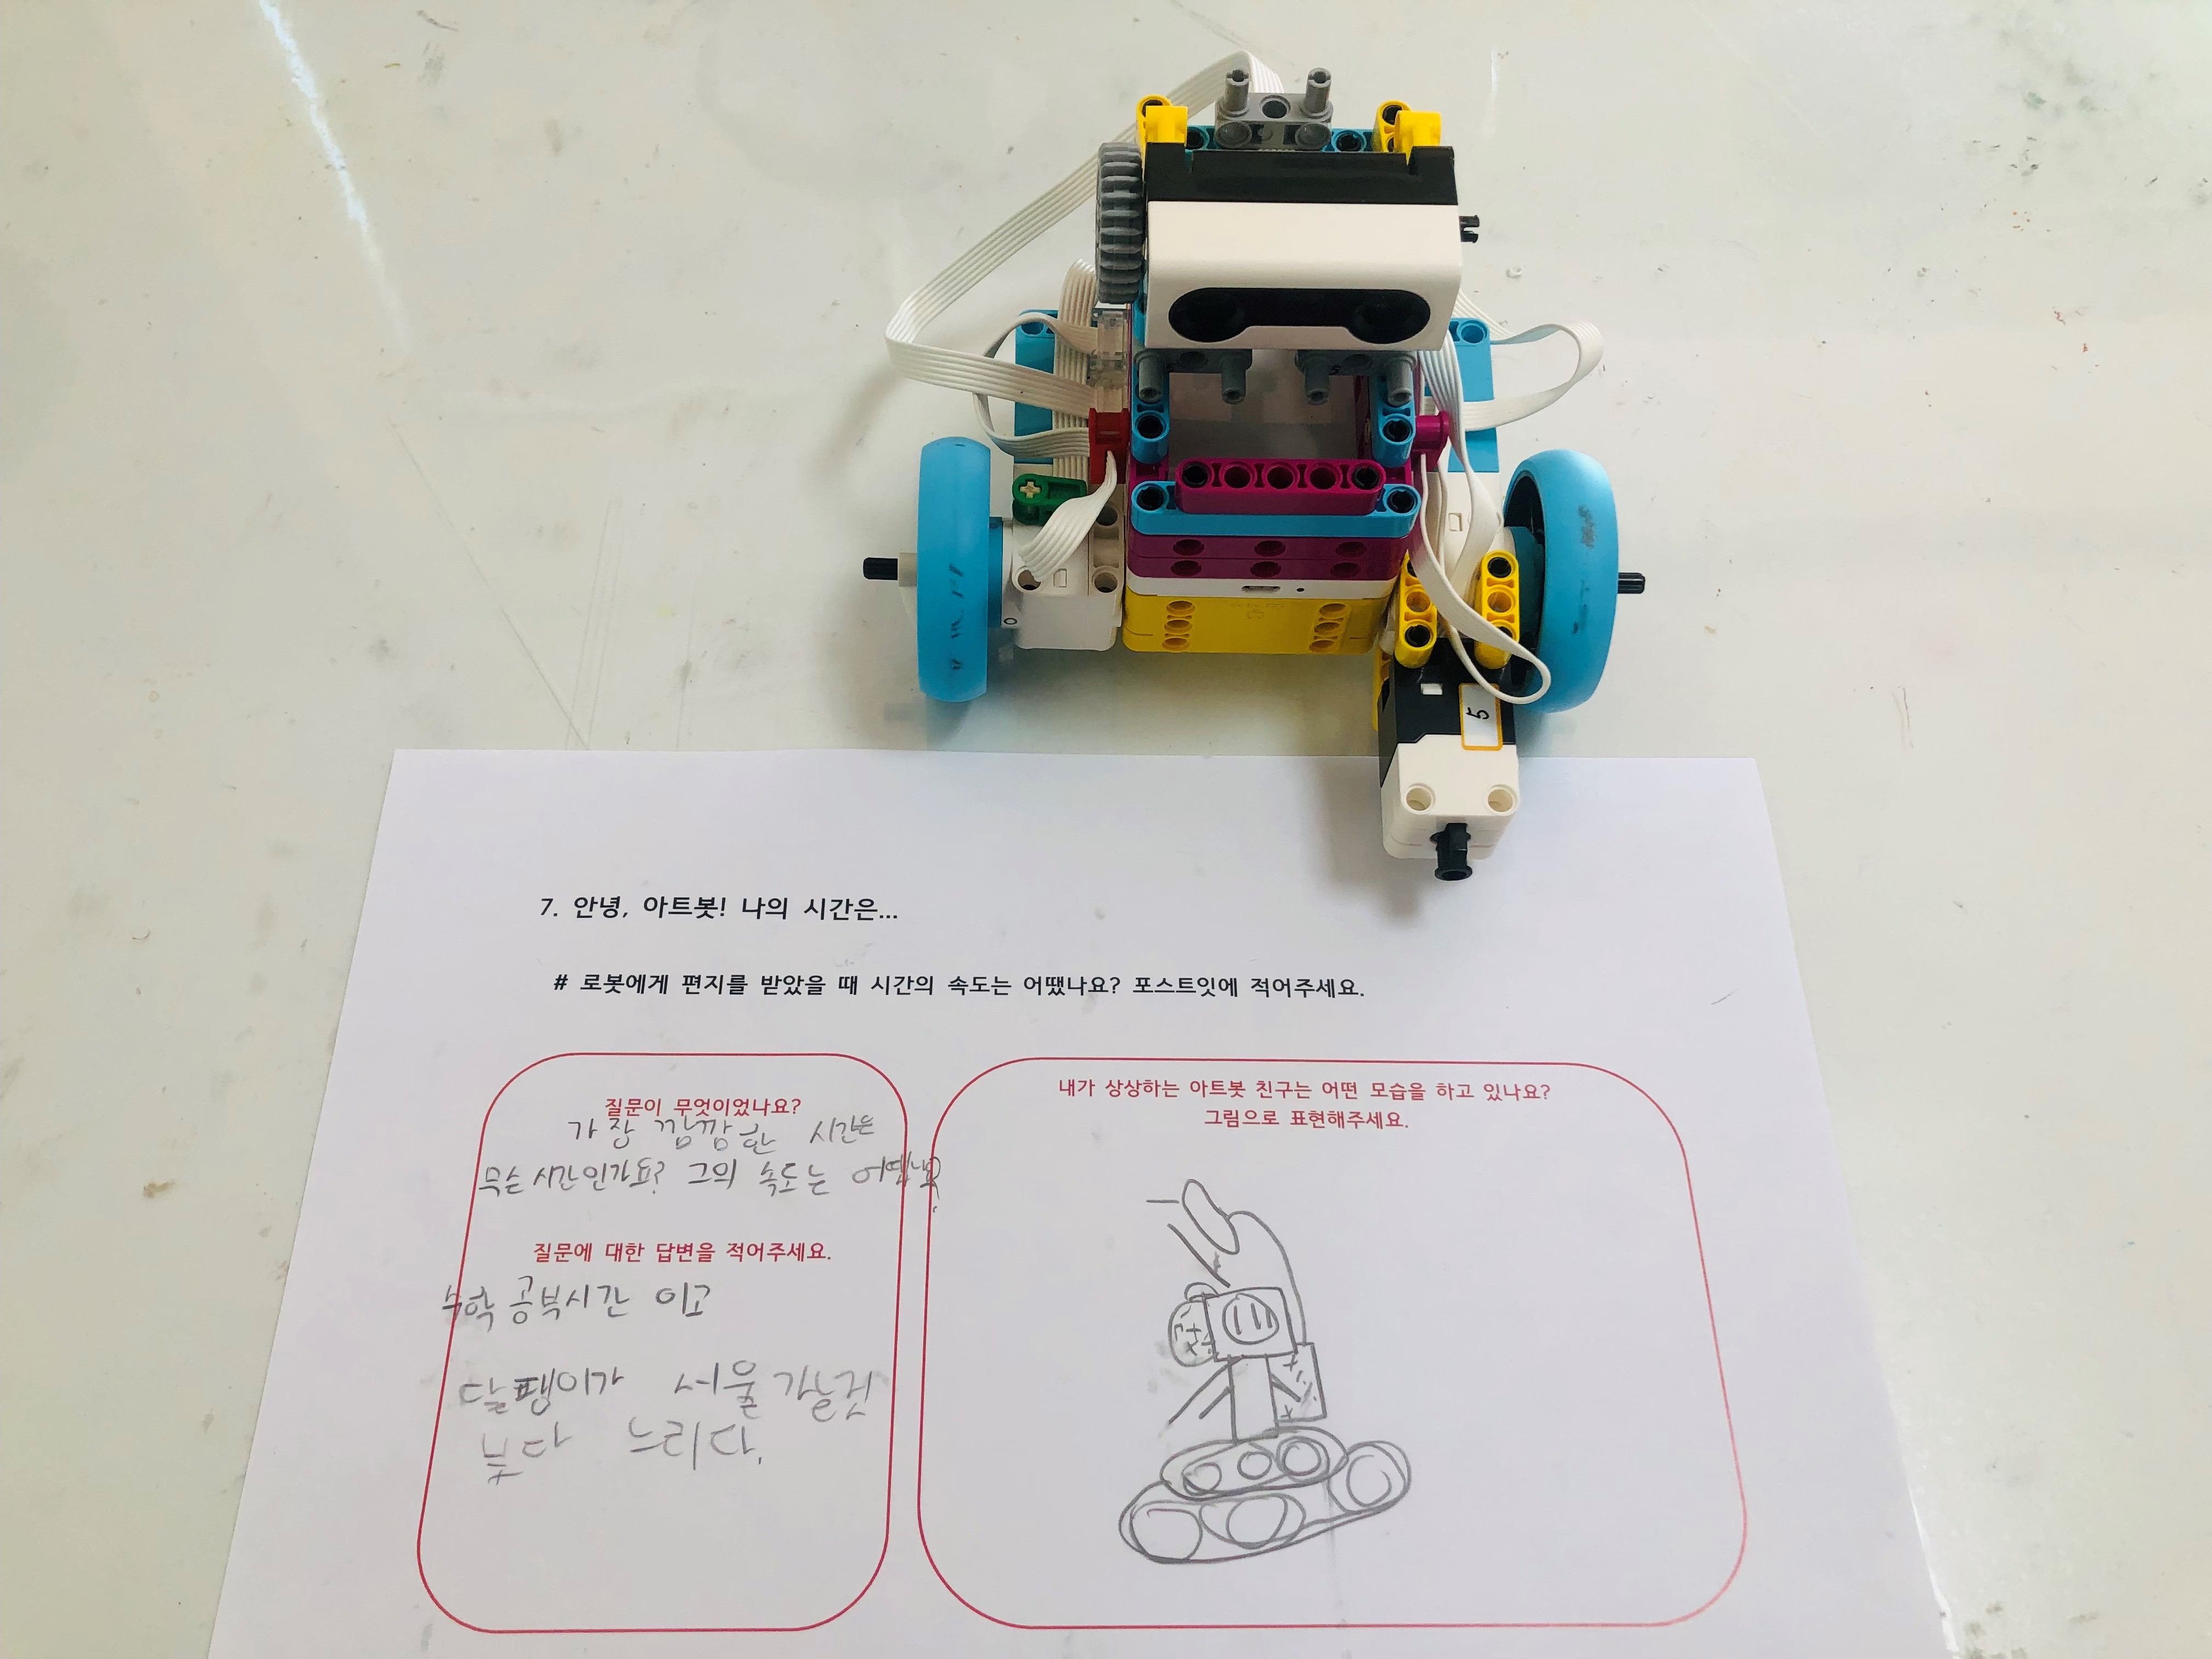 5
7. 안녕, 아트봇! 나의 시간은...
# 로봇에게 편지를 받았을 때 시간의 속도는 어땠나요? 포스트잇에 적어주세요.
질문이 무엇이었나요?
가장 깜깜한 시간은
무슨 시간인가요? 그의 속도는 어땠나요?
질문에 대한 답변을 적어주세요.
수학 공부시간 이고
달팽이가 서울 가는것
보다 느리다.
내가 상상하는 아트봇 친구는 어떤 모습을 하고 있나요?
그림으로 표현해주세요.